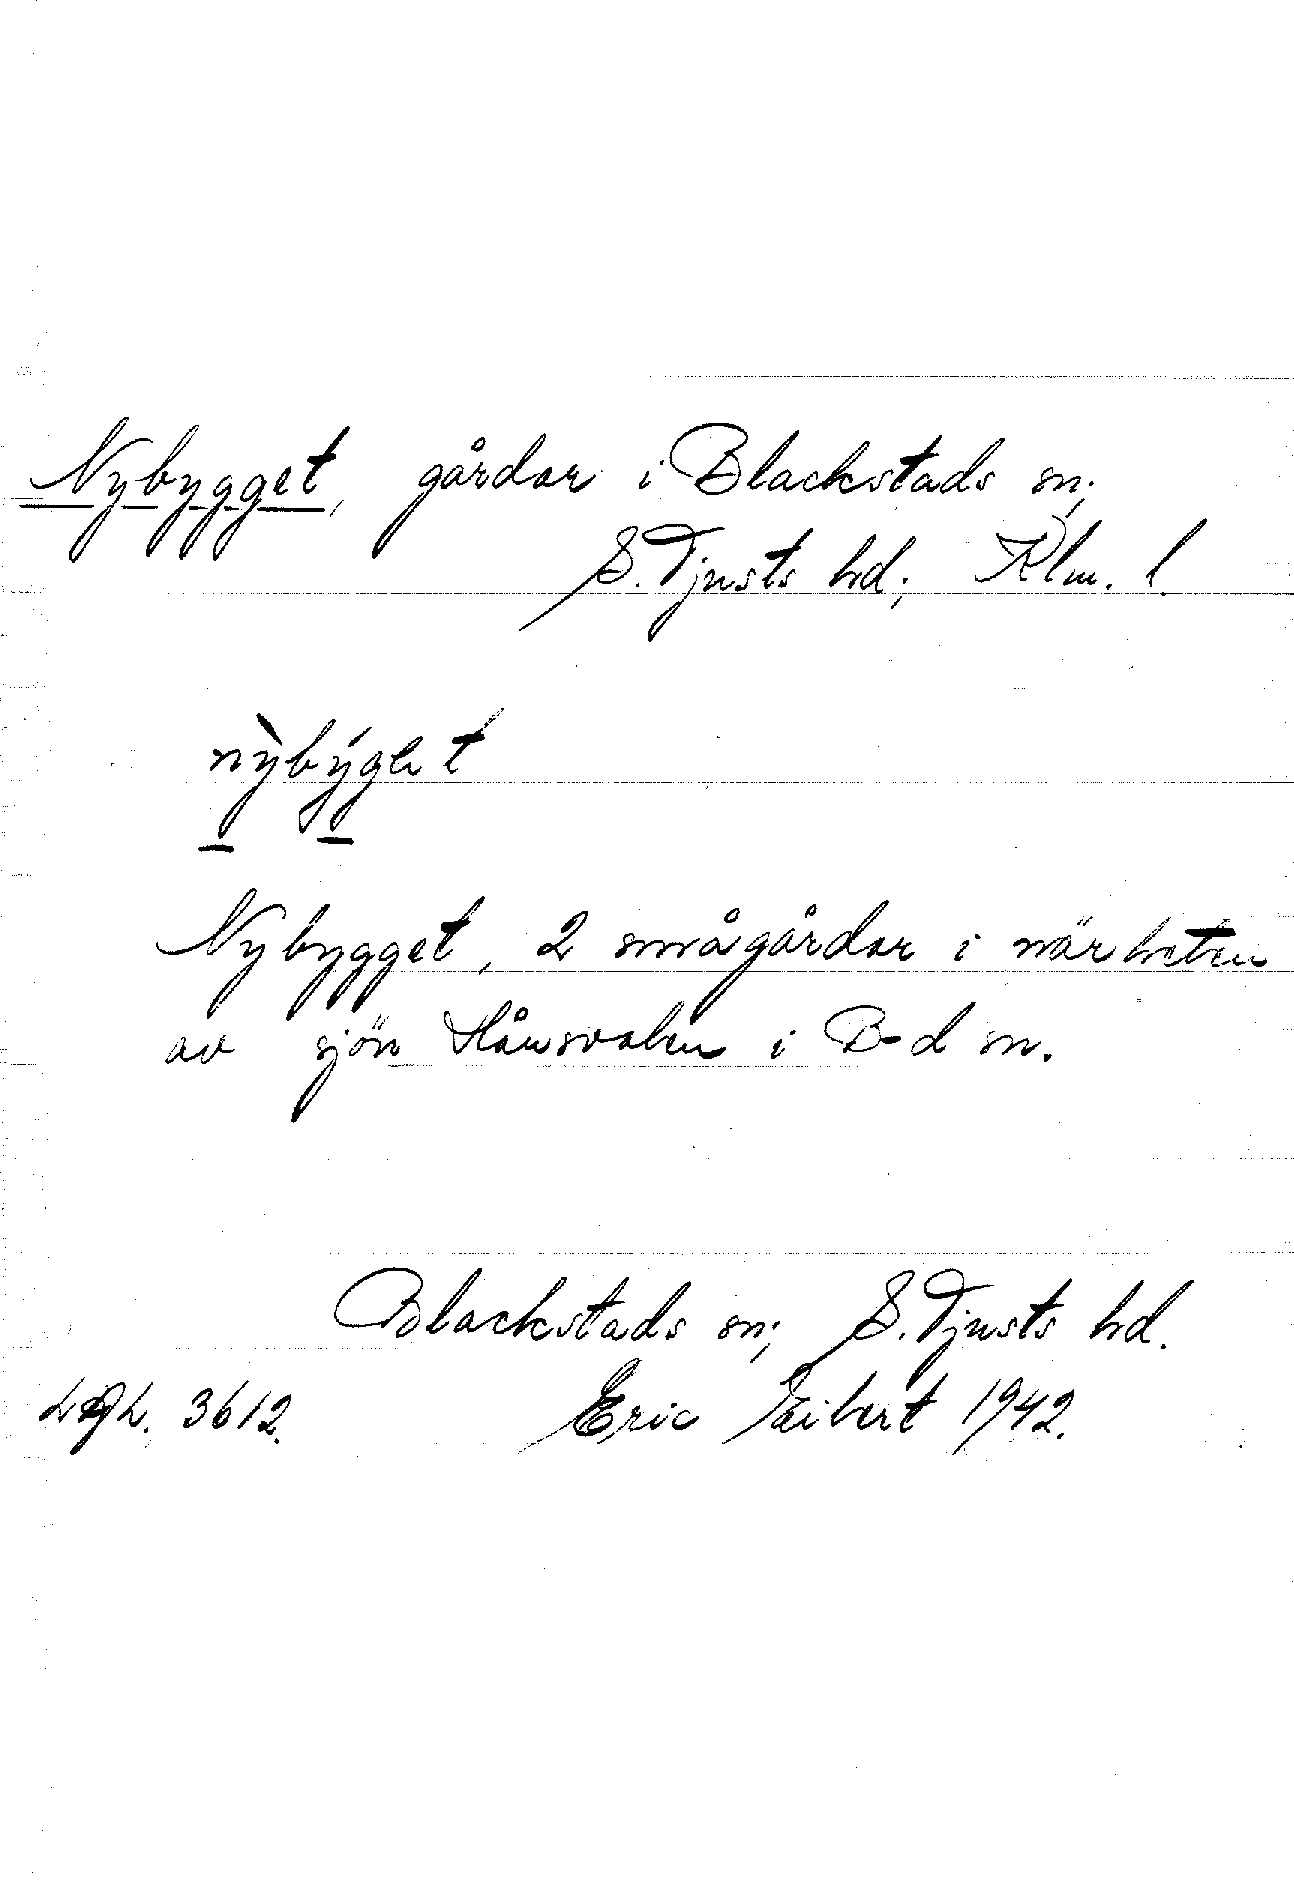 Nybygget, gårdar i Blackstads sn;
S. Tjusts hd; Klm. l.
nỳbýget
Nybygget, 2 smågårdar i närheten
av sjön i B-d sn.
Blackstads sn; S. Tjusts hd.
3612. Eric 1942.